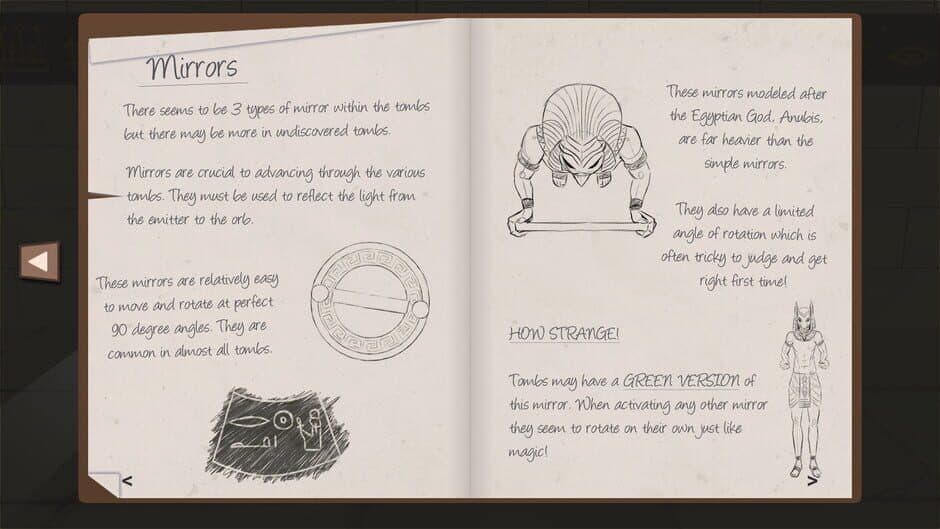 Mirrors
There seems to be 3 types of mirror within the tombs
but there may be more in undiscovered tombs.
Mirrors are crucial to advancing through the various
tombs. They must be used to reflect the light from
the emitter to the orb.
These mirrors are relatively easy
to move and rotate at perfect
90 degree angles. They are
common in almost all tombs.
<
These mirrors modeled after
the Egyptian God, Anubis,
are far heavier than the
simple mirrors.
They also have a limited
angle of rotation which is
often tricky to judge and get
right first time!
HOW STRANGE!
Tombs may have a GREEN VERSION of
this mirror. When activating any other mirror
they seem to rotate on their own just like
magic!
>